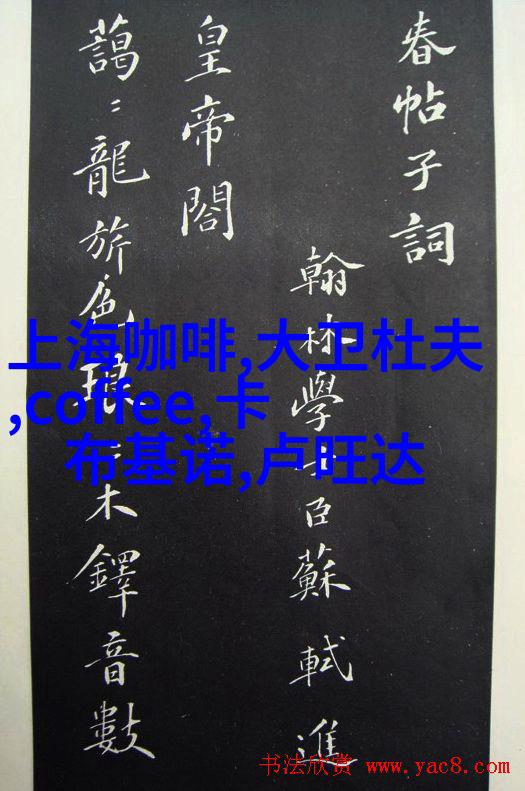 春帖子詞
翰林學士臣蘇軾進
皇帝閣
藹〻龍旂色琅〻木鐸音數
上海咖啡,大卫杜夫
,coffee,卡
布基诺,卢旺达
书法欣赏 www.yac8.com